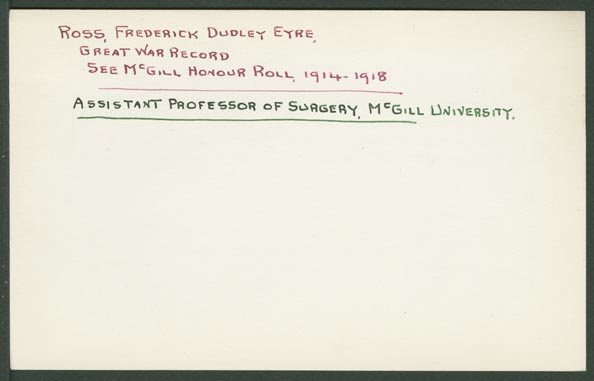 Ross, Frederick Dudley Eyre,
Great War Record
See McGill Honour Roll, 1914-1918
Assistant Professor of Surgery, McGill University.